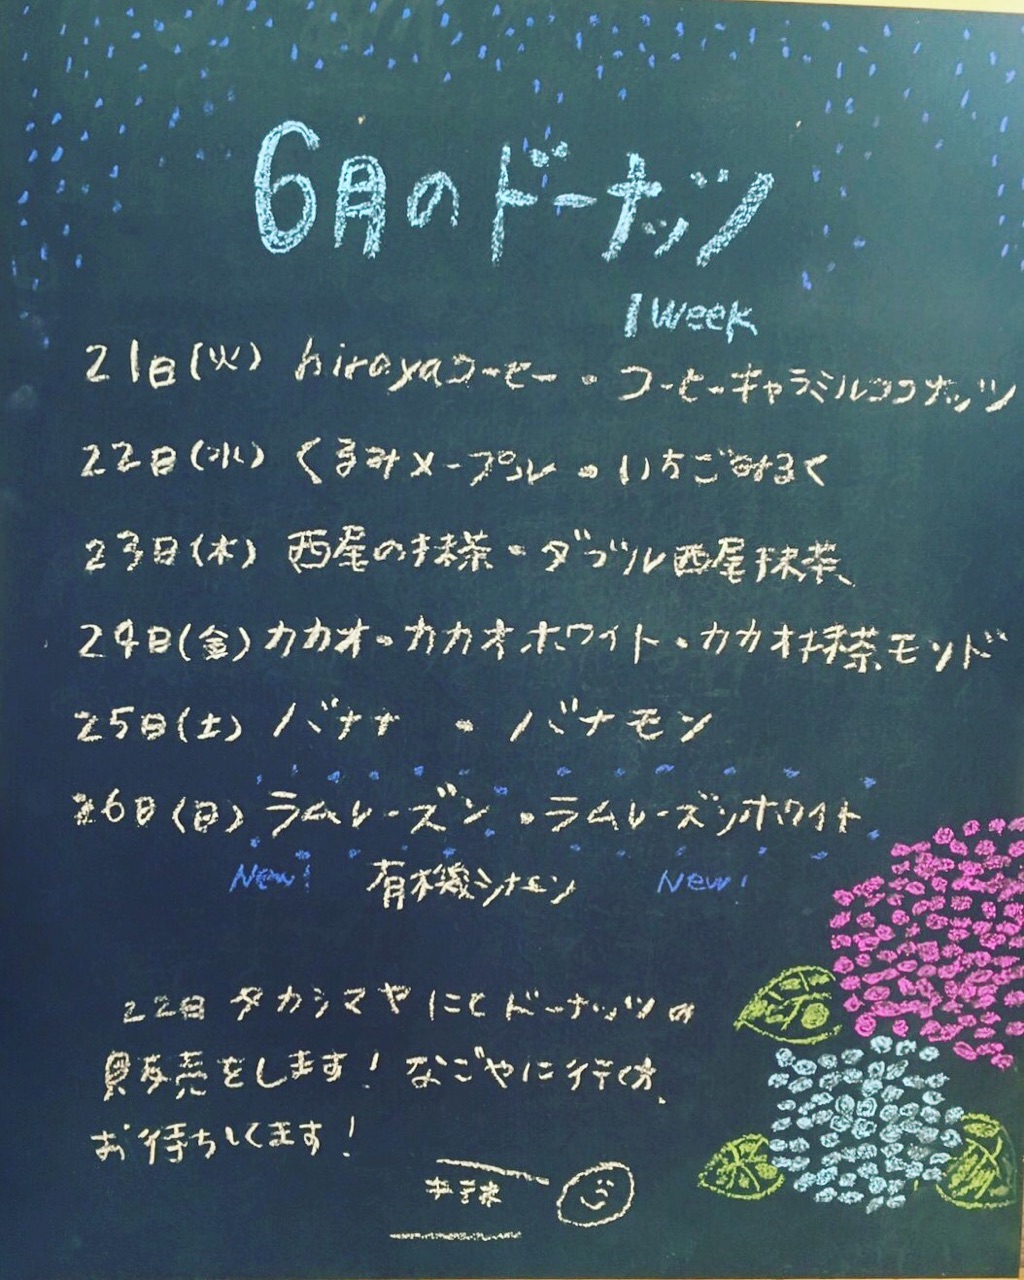 6月のドーナッツ
1 week
21日(火) hiroyaコーヒー・コーヒーキャラミルココナッツ
22日(水) くるみメープル・いちごみるく
23日(木) 西尾の抹茶・ダブル西尾抹茶
24日(金) カカオ・カカオホワイト・カカオ抹茶モンド
25日(土) バナナ・バナモン
26日(日) ラムレーズン・ラムレーズンホワイト
New! 有機シナモン New!
22日 タカシマヤにてドーナッツの
販売をします! なごやに行く方、
お待ちしてます!